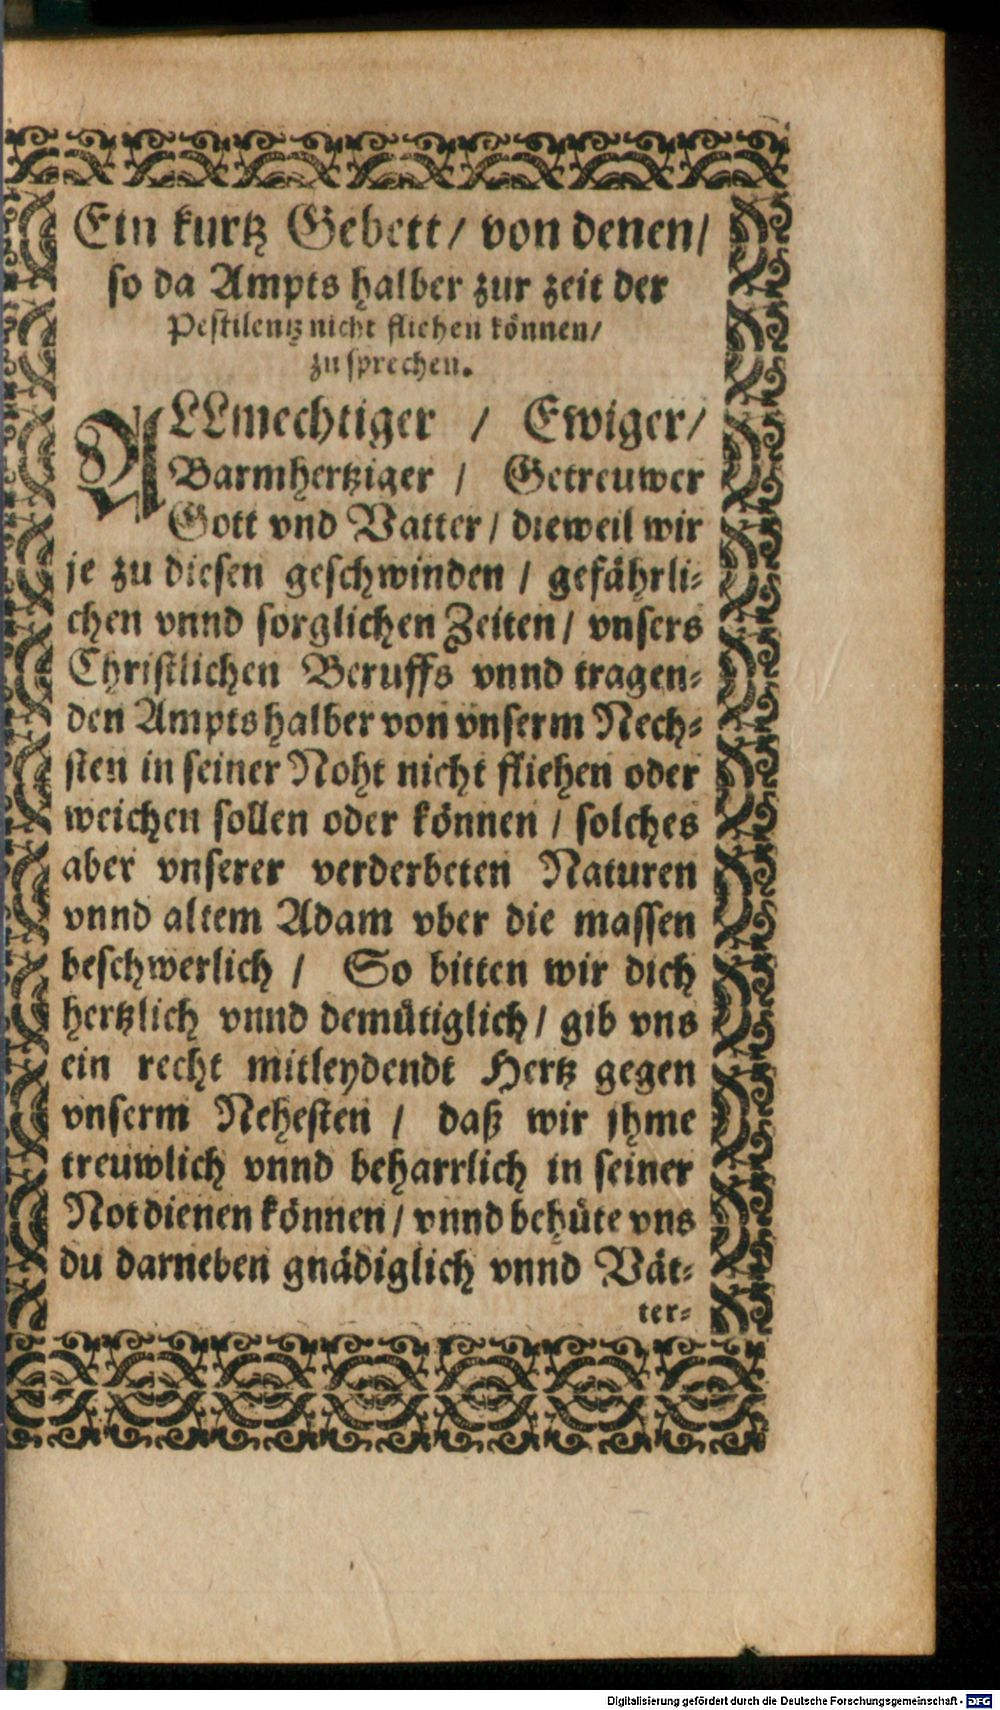 Ein kurtz Gebett / von denen /
so da Ampts halber zur zeit der
Pestilentz nicht fliehen können /
zu sprechen.
ALLmechtiger / Ewiger /
Barmhertziger / Getreuwer
Gott vnd Vatter / dieweil wir
je zu diesen geschwinden / gefährli-
chen vnnd sorglichen Zeiten / vnsers
Christlichen Beruffs vnnd tragen-
den Ampts halber von vnserm Nech-
sten in seiner Noht nicht fliehen oder
weichen sollen oder können / solches
aber vnserer verderbeten Naturen
vnnd altem Adam vber die massen
beschwerlich / So bitten wir dich
hertzlich vnnd demütiglich / gib vns
ein recht mitleydendt Hertz gegen
vnserm Nehesten / daß wir jhme
treuwlich vnnd beharrlich in seiner
Not dienen können / vnnd behüte vns
du darneben gnädiglich vnnd Vät-
ter-
Digitalisierung gefördert durch die Deutsche Forschungsgemeinschaft - DFG